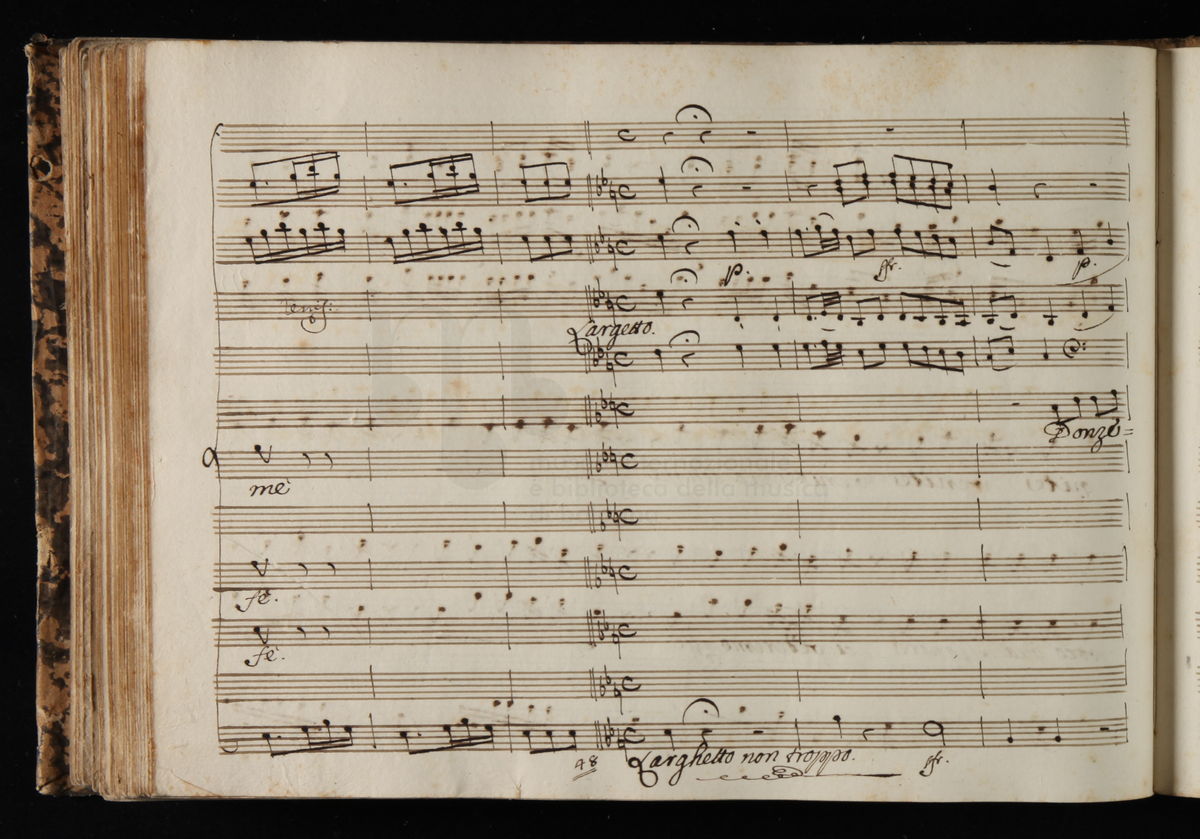 p.
fr.
p.
Largetto.
Donze=
mè
fè.
fè.
48
Larghetto non troppo.
fr.